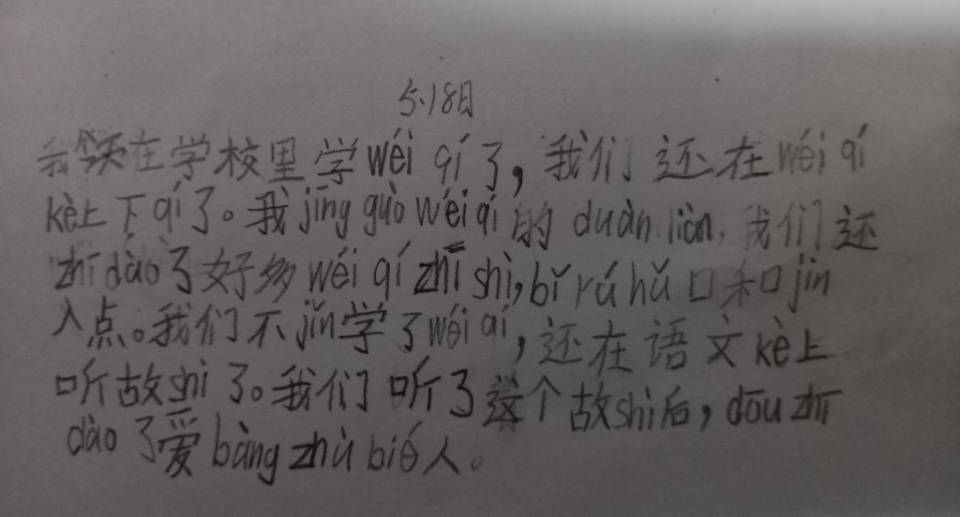 5.18日
我今天在学校里学wéi qí了，我们还在wéi qí
kè上下qí了。我jīng guò wéi qí的duàn liàn，我们还
zhī dào了好多wéi qí zhī shi，bǐ rú hǔ口和jìn
入点。我们不jǐn学了wéi qí，还在语文kè上
听故shi了。我们听了这个故shi后，dōu zhī
dào了爱bāng zhù bié人。